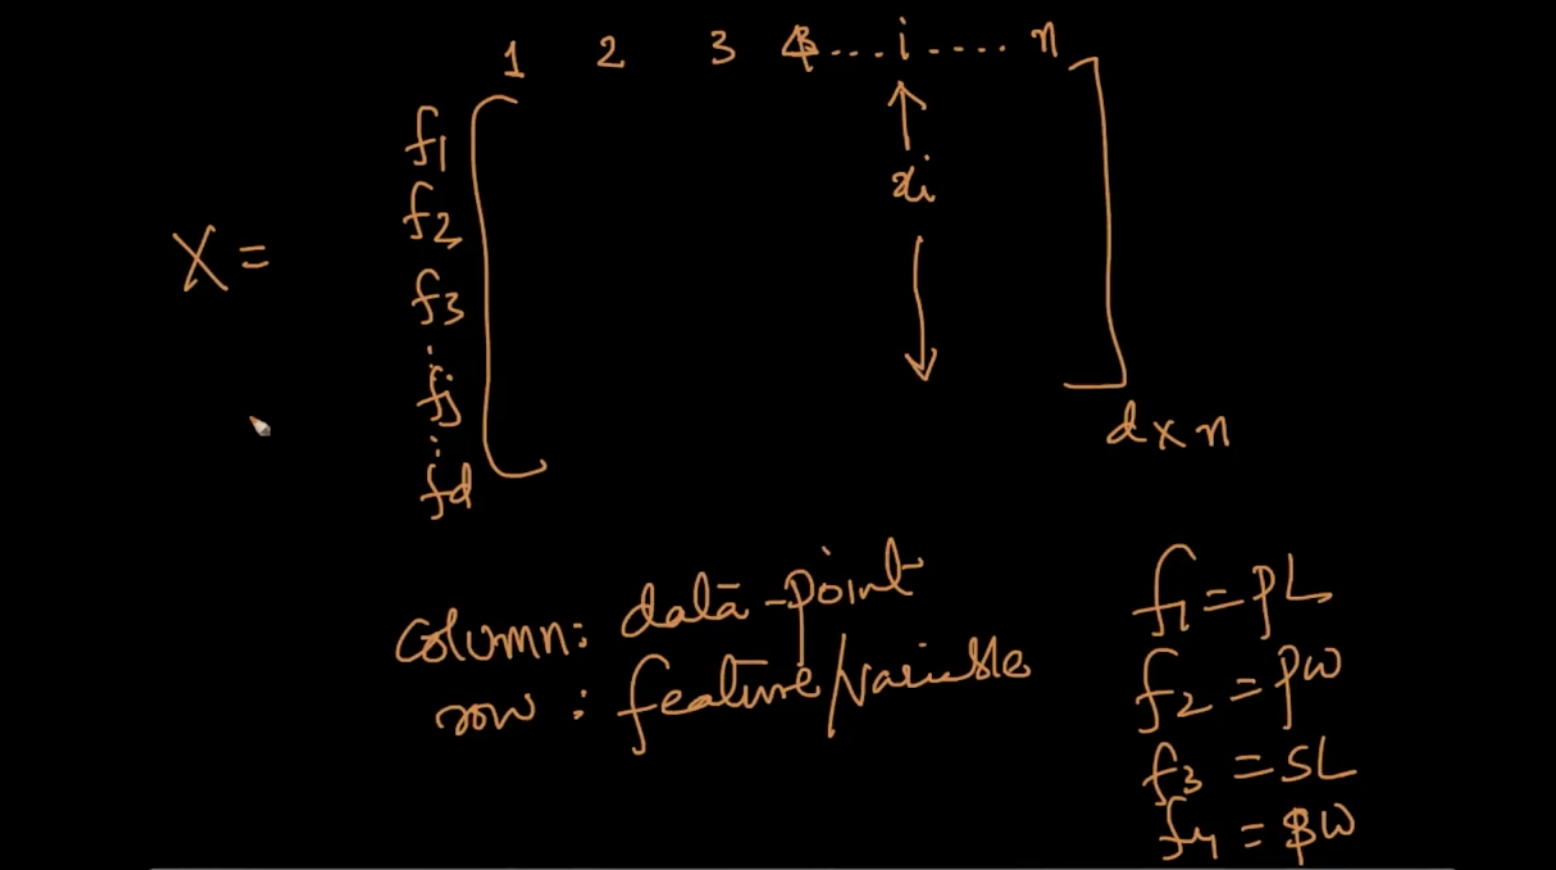 1 2 3 ...i.... n
f1
f2
X =
xi
f3
fj
fd
d x n
column: data-point
row: feature/variable
f1 = PL
f2 = PW
f3 = SL
f4 = SW